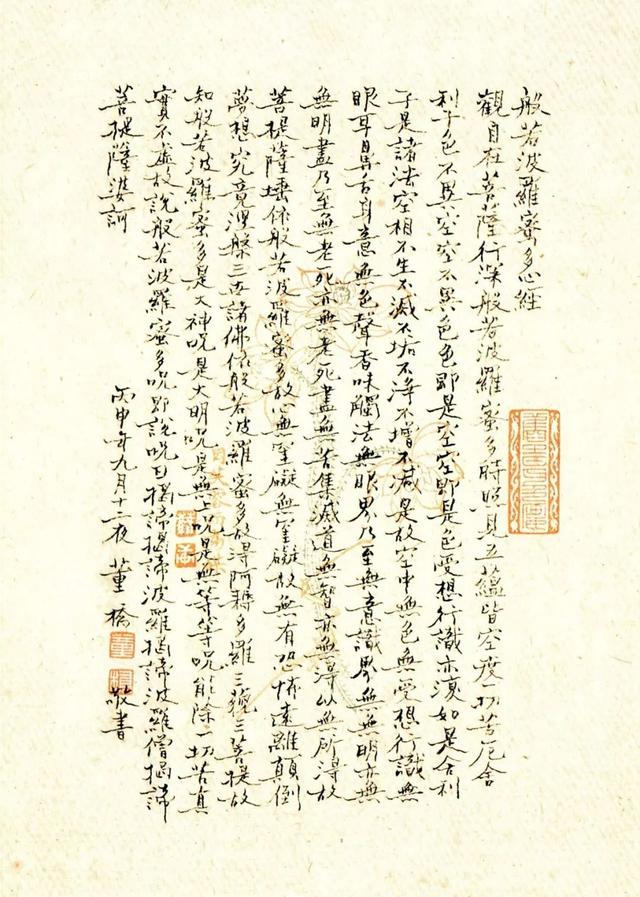 般若波羅蜜多心經
觀自在菩薩行深般若波羅蜜多時照見五蘊皆空度一切苦厄舍
利子色不異空空不異色色即是空空即是色受想行識亦復如是舍利
子是諸法空相不生不滅不垢不淨不增不減是故空中無色無受想行識無
眼耳鼻舌身意無色聲香味觸法無眼界乃至無意識界無無明亦無
無明盡乃至無老死亦無老死盡無苦集滅道無智亦無得以無所得故
菩提薩埵依般若波羅蜜多故心無罣礙無罣礙故無有恐怖遠離顛倒
夢想究竟涅槃三世諸佛依般若波羅蜜多故得阿耨多羅三藐三菩提故
知般若波羅蜜多是大神呪是大明呪是無上呪是無等等呪能除一切苦真
實不虛故說般若波羅蜜多呪即說呪曰揭諦揭諦波羅揭諦波羅僧揭諦
菩提薩婆訶
丙申年九月十三夜 董橋 董 橋 敬書